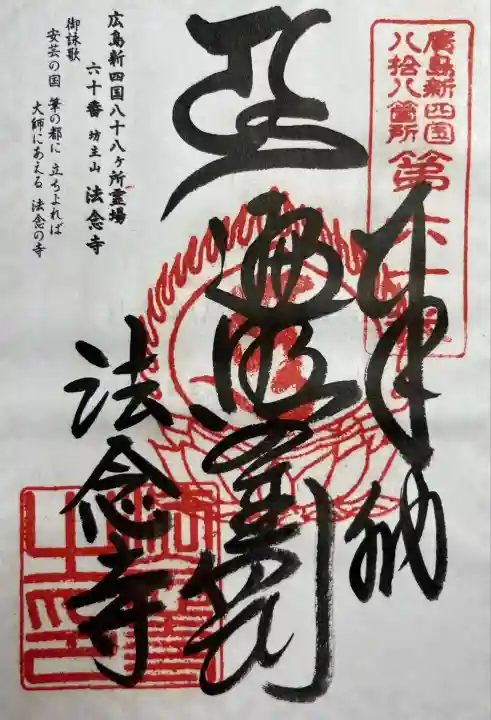 廣島新四国
八拾八箇所
第六十番
奉納
遍照金剛
法念寺
広島新四国八十八ヶ所霊場
六十番 坊主山 法念寺
御詠歌
安芸の国 筆の都に 立ちよれば
大師にあえる 法念の寺